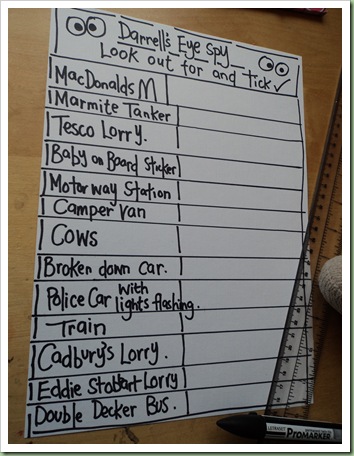 Darrell's Eye Spy
Look out for and tick ✓
MacDonalds M
Marmite Tanker
Tesco Lorry.
Baby on Board Sticker
Motorway Station
Camper Van
Cows
Broken down car.
Police Car with
lights flashing.
Train
Cadbury's Lorry.
Eddie Stobbart Lorry
Double Decker Bus.
ProMarker